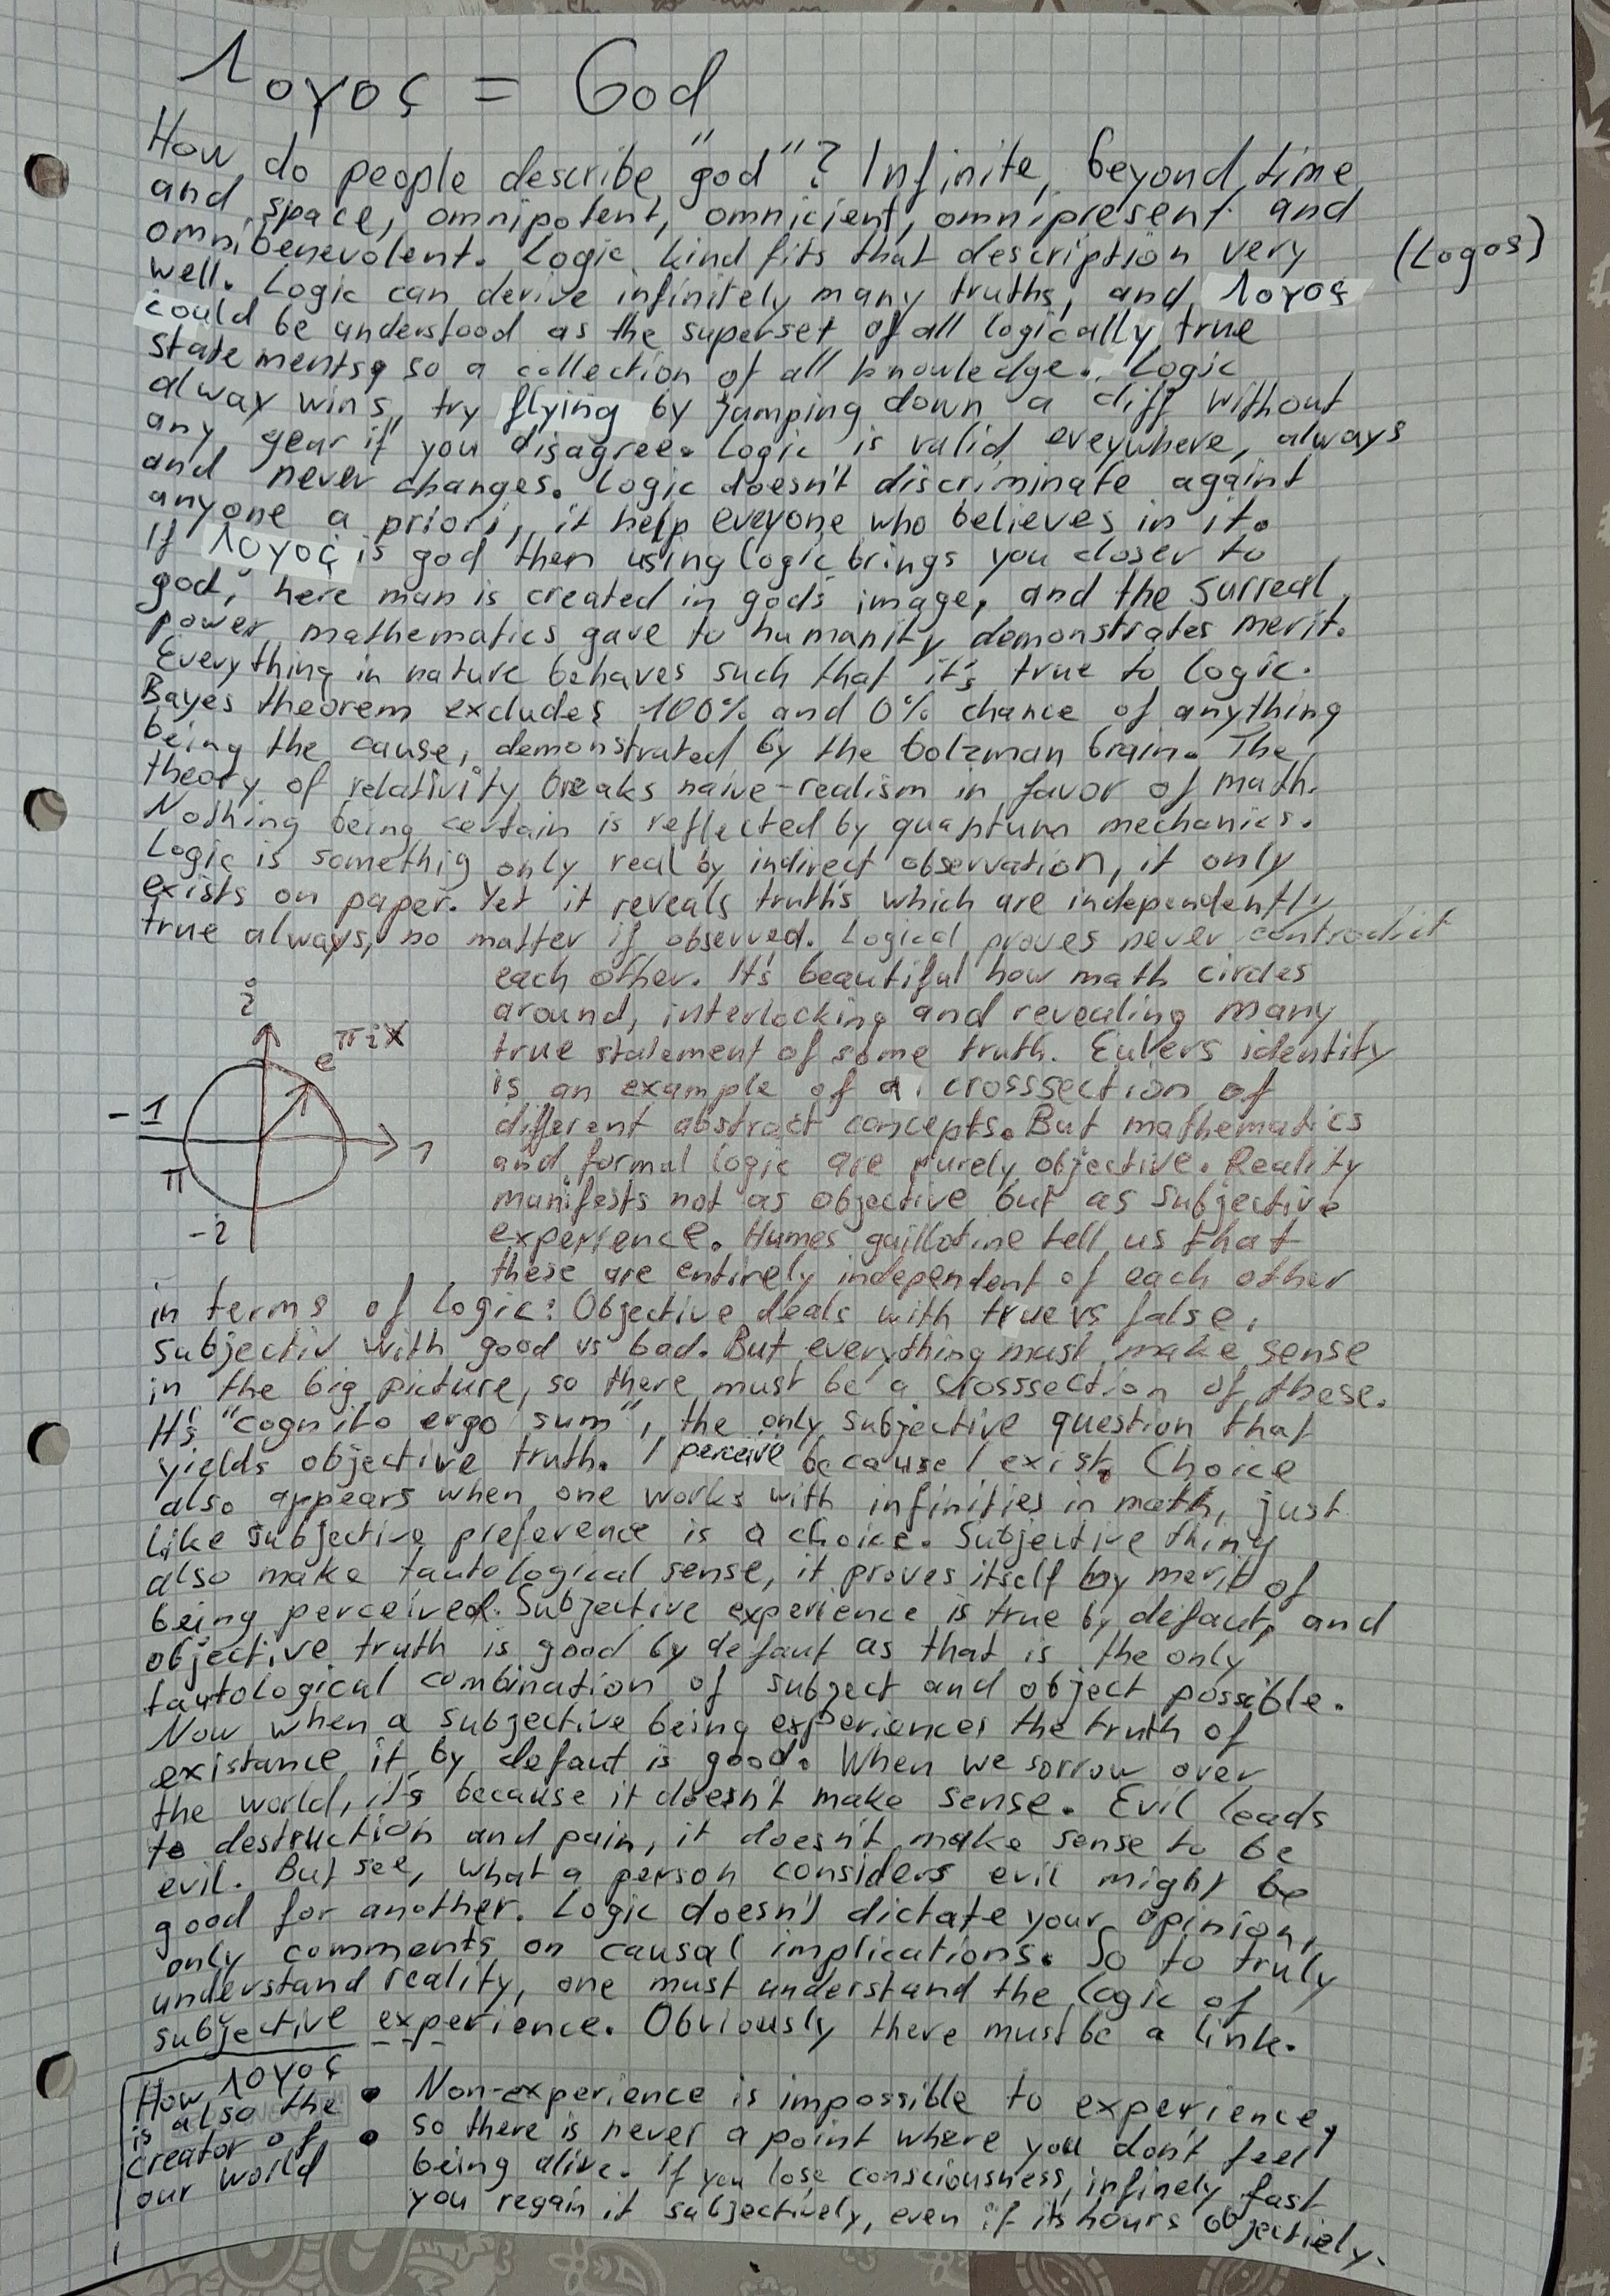 Λογος = God
How do people describe "god"? Infinite, beyond time
and space, omnipotent, omnicient, omnipresent and
omnibenevolent. Logic kind fits that description very
well. Logic can derive infinitely many truths, and Λογος (Logos)
could be understood as the superset of all logically true
statements, so a collection of all knowledge. Logic
alway wins, try flying by jumping down a cliff without
any gear if you disagree. Logic is valid eveywhere, always
and never changes. Logic doesn't discriminate againt
anyone a priori, it help everyone who believes in it.
If Λογος is god then using logic brings you closer to
god, here man is created in gods image, and the surreal
power mathematics gave to humanity demonstrates merit.
Everything in nature behaves such that it's true to logic.
Bayes theorem excludes 100% and 0% chance of anything
being the cause, demonstrated by the bolzman brain. The
theory of relativity breaks naive-realism in favor of math.
Nothing being certain is reflected by quantum mechanics.
Logic is somethig only real by indirect observation, it only
exists on paper. Yet it reveals truths which are independently
true always, no matter if observed. Logical proves never contradict
each other. It's beautiful how math circles
around, interlocking and revealing many
true statement of some truth. Eulers identity
is an example of a crosssection of
different abstract concepts. But mathematics
and formal logic are purely objective. Reality
manifests not as objective but as subjective
experience. Humes guillotine tell us that
these are entirely independent of each other
i
e^πix
-1
1
π
-i
in terms of logic: Objective deals with true vs false,
subjectiv with good vs bad. But everything must make sense
in the big picture, so there must be a crosssection of these.
It's "cognito ergo sum", the only subjective question that
yields objective truth. I perceive because I exist. Choice
also appears when one works with infinities in math, just
like subjective preference is a choice. Subjective thing
also make tautological sense, it proves itself by merit of
being perceived. Subjective experience is true by defaut, and
objective truth is good by defaut as that is the only
tautological combination of subject and object possible.
Now when a subjective being experiences the truth of
existance it by defaut is good. When we sorrow over
the world, it's because it doesn't make sense. Evil leads
to destruction and pain, it doesn't make sense to be
evil. But see, what a person considers evil might be
good for another. Logic doesn't dictate your opinion,
only comments on causal implications. So to truly
understand reality, one must understand the logic of
subjective experience. Obviously there must be a link.
How Λογος
is also the
creator of
our world
• Non-experience is impossible to experience,
• so there is never a point where you don't feel
being alive. If you lose consciousness, infinely fast
you regain it subjectively, even if its hours objectiely.